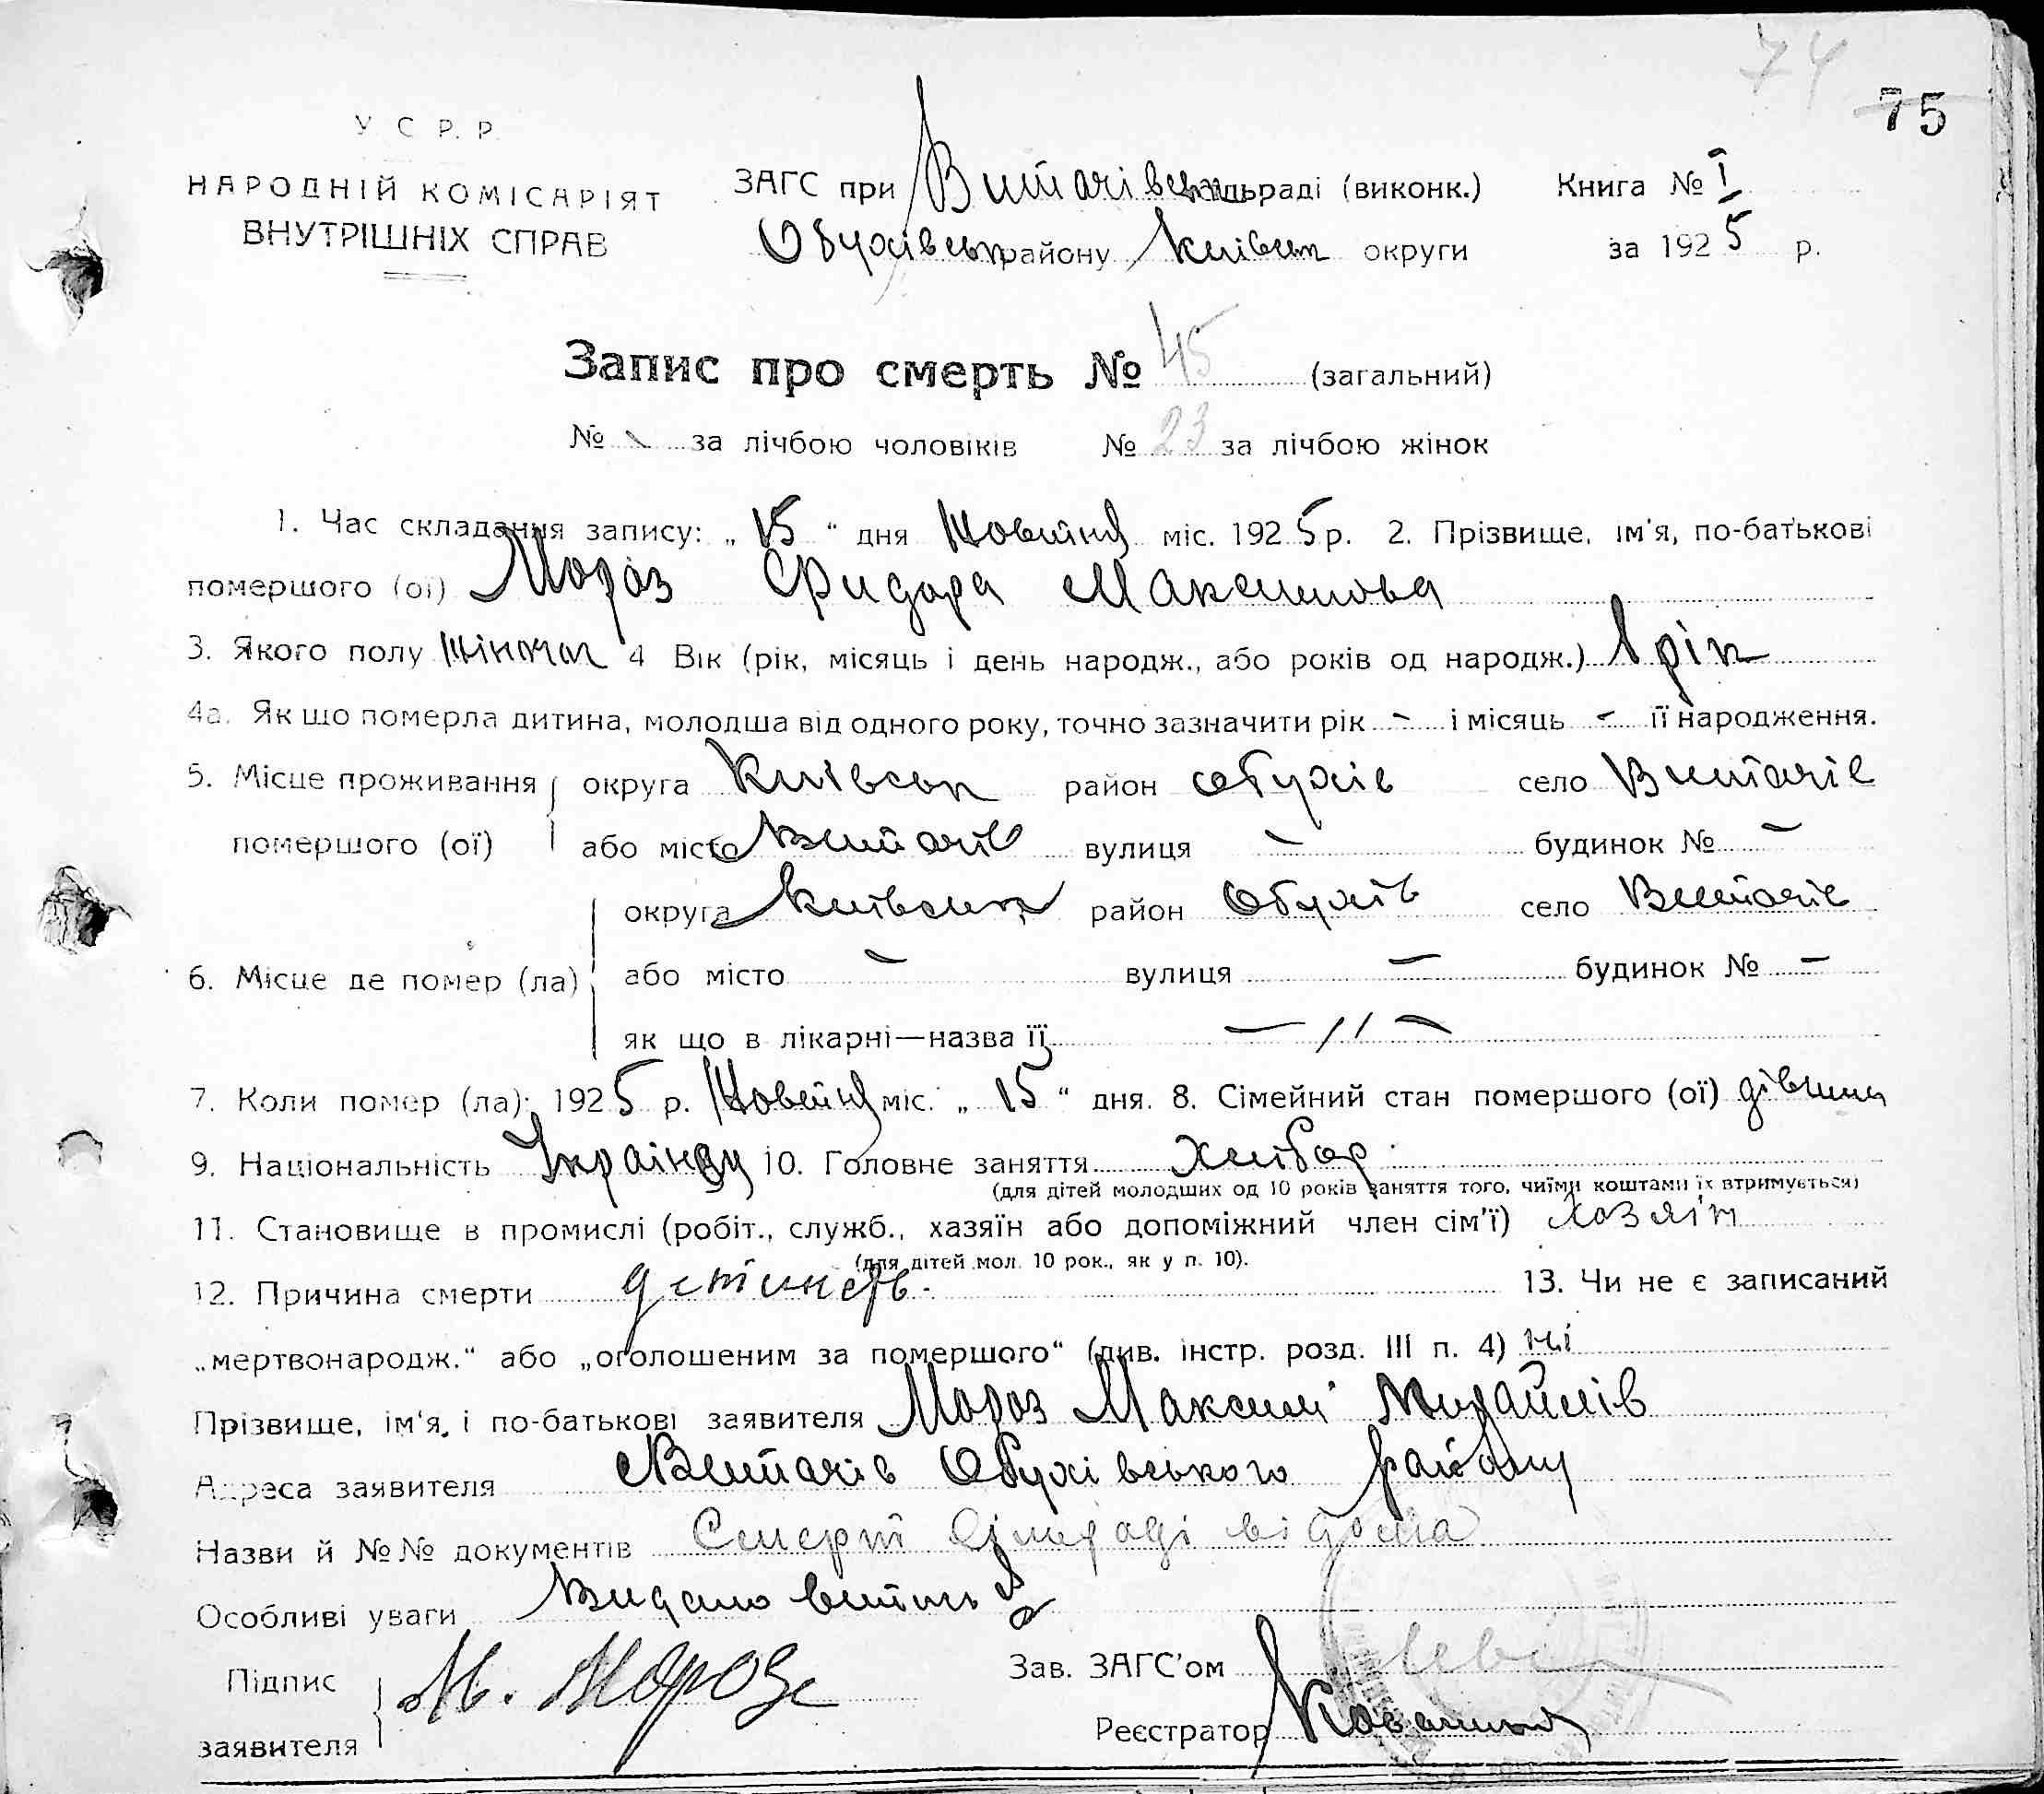 74
75
У С Р. Р.
НАРОДНІЙ КОМІСАРІЯТ
ВНУТРІШНІХ СПРАВ
ЗАГС при Витачівськ сільраді (виконк.) Книга № I
Обухівськ району Київськ округи за 1925 р.
Запис про смерть № 45 (загальний)
№ - за лічбою чоловіків № 23 за лічбою жінок
1. Час складання запису: „ 15 “ дня Жовтня міс. 1925 р. 2. Прізвище, ім'я, по-батькові
помершого (ої) Мороз Фидора Максимова
3. Якого полу жіноч 4 Вік (рік, місяць і день народж., або років од народж.) 1 рік
4а. Як що померла дитина, молодша від одного року, точно зазначити рік - і місяць - її народження.
5. Місце проживання округа Київськ район Обухів село Витачів
помершого (ої) або місто Витачів вулиця - будинок № -
округа Київськ район Обухів село Витачів
6. Місце де помер (ла) або місто - вулиця - будинок № -
як що в лікарні—назва її — // —
7. Коли помер (ла): 1925 р. Жовтня міс. „ 15 “ дня. 8. Сімейний стан помершого (ої) дівчина
9. Національність 10. Головне заняття хлібор
(для дітей молодших од 10 років заняття того, чиїми коштами їх втримується)
11. Становище в промислі (робіт., служб., хазяїн або допоміжний член сім'ї) хозяїн
(для дітей мол. 10 рок., як у п. 10).
12. Причина смерти 13. Чи не є записаний
„мертвонародж.“ або „оголошеним за помершого“ (див. інстр. розд. III п. 4) ні
Прізвище, ім'я, і по-батькові заявителя Мороз Максим Михайлів
Адреса заявителя Витачів Обухівського району
Назви й №№ документів Смерт сільраді відома
Особливі уваги Видано витяг
Підпис М. Мороз Зав. ЗАГС'ом
заявителя Реєстратор